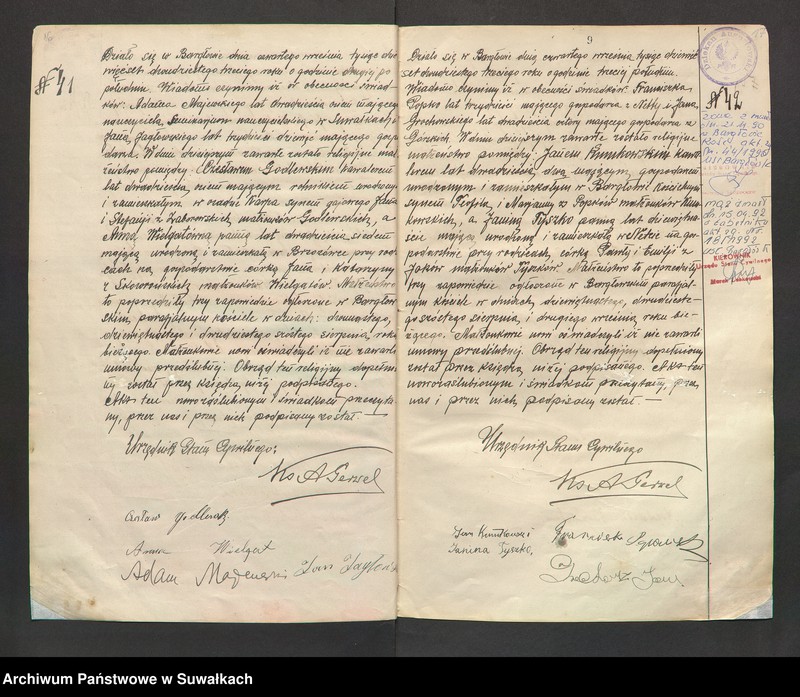 № 41
Działo się w Bargłowie dnia czwartego września tysiąc dzie
więćset dwudziestego trzeciego roku o godzinie drugiej po
południu. Wiadomo czynimy iż w obecności świad-
ków: Adama Majewskiego lat dwadzieścia osiem mającego
nauczyciela Seminarjum nauczycielskiego w Suwałkach i
Jana Jagłowskiego lat trzydzieści dziewięć mającego gospo
darza. W dniu dzisiejszym zawarte zostało religijne mał
żeństwo pomiędzy: Godlewskim kawalerem
lat dwadzieścia osiem mającym rolnikiem urodzonym
i zamieszkałym w synem gajowego Jana
i Stefanji z małżonków Godlewskich, a
Anną Wielgatówną panną lat dwadzieścia siedem
mającą urodzoną i zamieszkałą w Brzozówce przy rodzi
cach na gospodarstwie córką Jana i Katarzyny
z Skowrońskich małżonków Wielgatów. Małżeństwo
to poprzedziły trzy zapowiedzie ogłoszone w Bargłow
skim parafjalnym kościele w dniach: dwunastego,
dziewiętnastego i dwudziestego szóstego sierpnia roku
bieżącego. Małżonkowie nowi oświadczyli iż nie zawarli
umowy przedślubnej. Obrzęd ten religijny dopełnio
ny został przez księdza niżej podpisanego.
Akt ten nowozaślubionym i świadkom przeczyta
ny, przez nas i przez nich podpisany został. —
Urzędnik Stanu Cywilnego:
Ks A Gerwel
Anna Wielgat
Adam Majewski Jan
9
№ 42
Działo się w Bargłowie dnia czwartego września tysiąc dziewięć
set dwudziestego trzeciego roku o godzinie trzeciej po południu.
Wiadomo czynimy iż w obecności świadków: Franciszka
Popko lat trzydzieści mającego gospodarza z Netty i Jana
Grochowskiego lat dwadzieścia cztery mającego gospodarza z
Górskich. W dniu dzisiejszym zawarte zostało religijne
małżeństwo pomiędzy: Janem Kunikowskim kawa
lerem lat dwadzieścia dwa mającym, gospodarzem
urodzonym i zamieszkałym w Bargłowie Kościelnym
synem Teofila i Marjanny z małżonków Kuni
kowskich, a Janiną Tyszko panną lat dziewiętna
ście mającą urodzoną i zamieszkałą w Netcie na go
podarstwie przy rodzicach, córką i Emilji z
Żuków małżonków Tyszków. Małżeństwo to poprzedziły
trzy zapowiedzie ogłoszone w Bargłowskim parafjal
nym kościele w dniach, dziewiętnastego, dwudzieste
go szóstego sierpnia, i drugiego września roku bie
żącego. Małżonkowie nowi oświadczyli iż nie zawarli
umowy przedślubnej. Obrzęd ten religijny dopełniony
został przez księdza niżej podpisanego. Akt ten
nowozaślubionym i świadkom przeczytany, przez
nas i przez nich podpisany został. —
Urzędnik Stanu Cywilnego
Ks A Gerwel
Jan Kunikowski
Janina Tyszko
Jan
mąż zmarł
KIEROWNIK
Urzędu Stanu Cywilnego
Archiwum Państwowe w Suwałkach